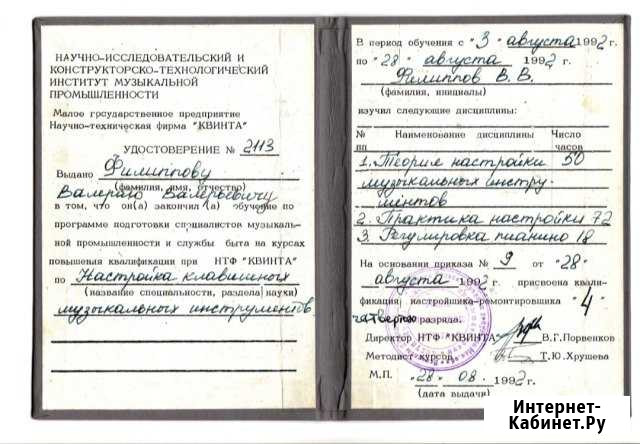 НАУЧНО-ИССЛЕДОВАТЕЛЬСКИЙ И
КОНСТРУКТОРСКО-ТЕХНОЛОГИЧЕСКИЙ
ИНСТИТУТ МУЗЫКАЛЬНОЙ
ПРОМЫШЛЕННОСТИ
Малое государственное предприятие
Научно-техническая фирма "КВИНТА"
УДОСТОВЕРЕНИЕ № 2113
Выдано Филиппову
(фамилия, имя, отчество)
Валерию Валерьевичу
в том, что он(а) закончил (а) обучение по
программе подготовки специалистов музыкаль-
ной промышленности и службы быта на курсах
повышения квалификации при НТФ "КВИНТА"
по Настройка клавишных
(название специальности, раздела науки)
музыкальных инструментов
В период обучения с "3" августа 1992 г.
по "28" августа 1992 г.
Филиппов В. В.
(фамилия, инициалы)
изучил следующие дисциплины:
№ пп Наименование дисциплины Число часов
1. Теория настройки 50
музыкальных инстру-
ментов
2. Практика настройки 72
3. Регулировка пианино 18
На основании приказа № 9 от "28"
августа 1992 г. присвоена квали-
фикация настройщика-ремонтировщика "4"
четвертого разряда.
Директор НТФ "КВИНТА" В.Г.Порвенков
Методист курсов Т.Ю.Хрущева
М.П. "28" 08. 1992 г.
(дата выдачи)
Интернет-
Кабинет.Ру